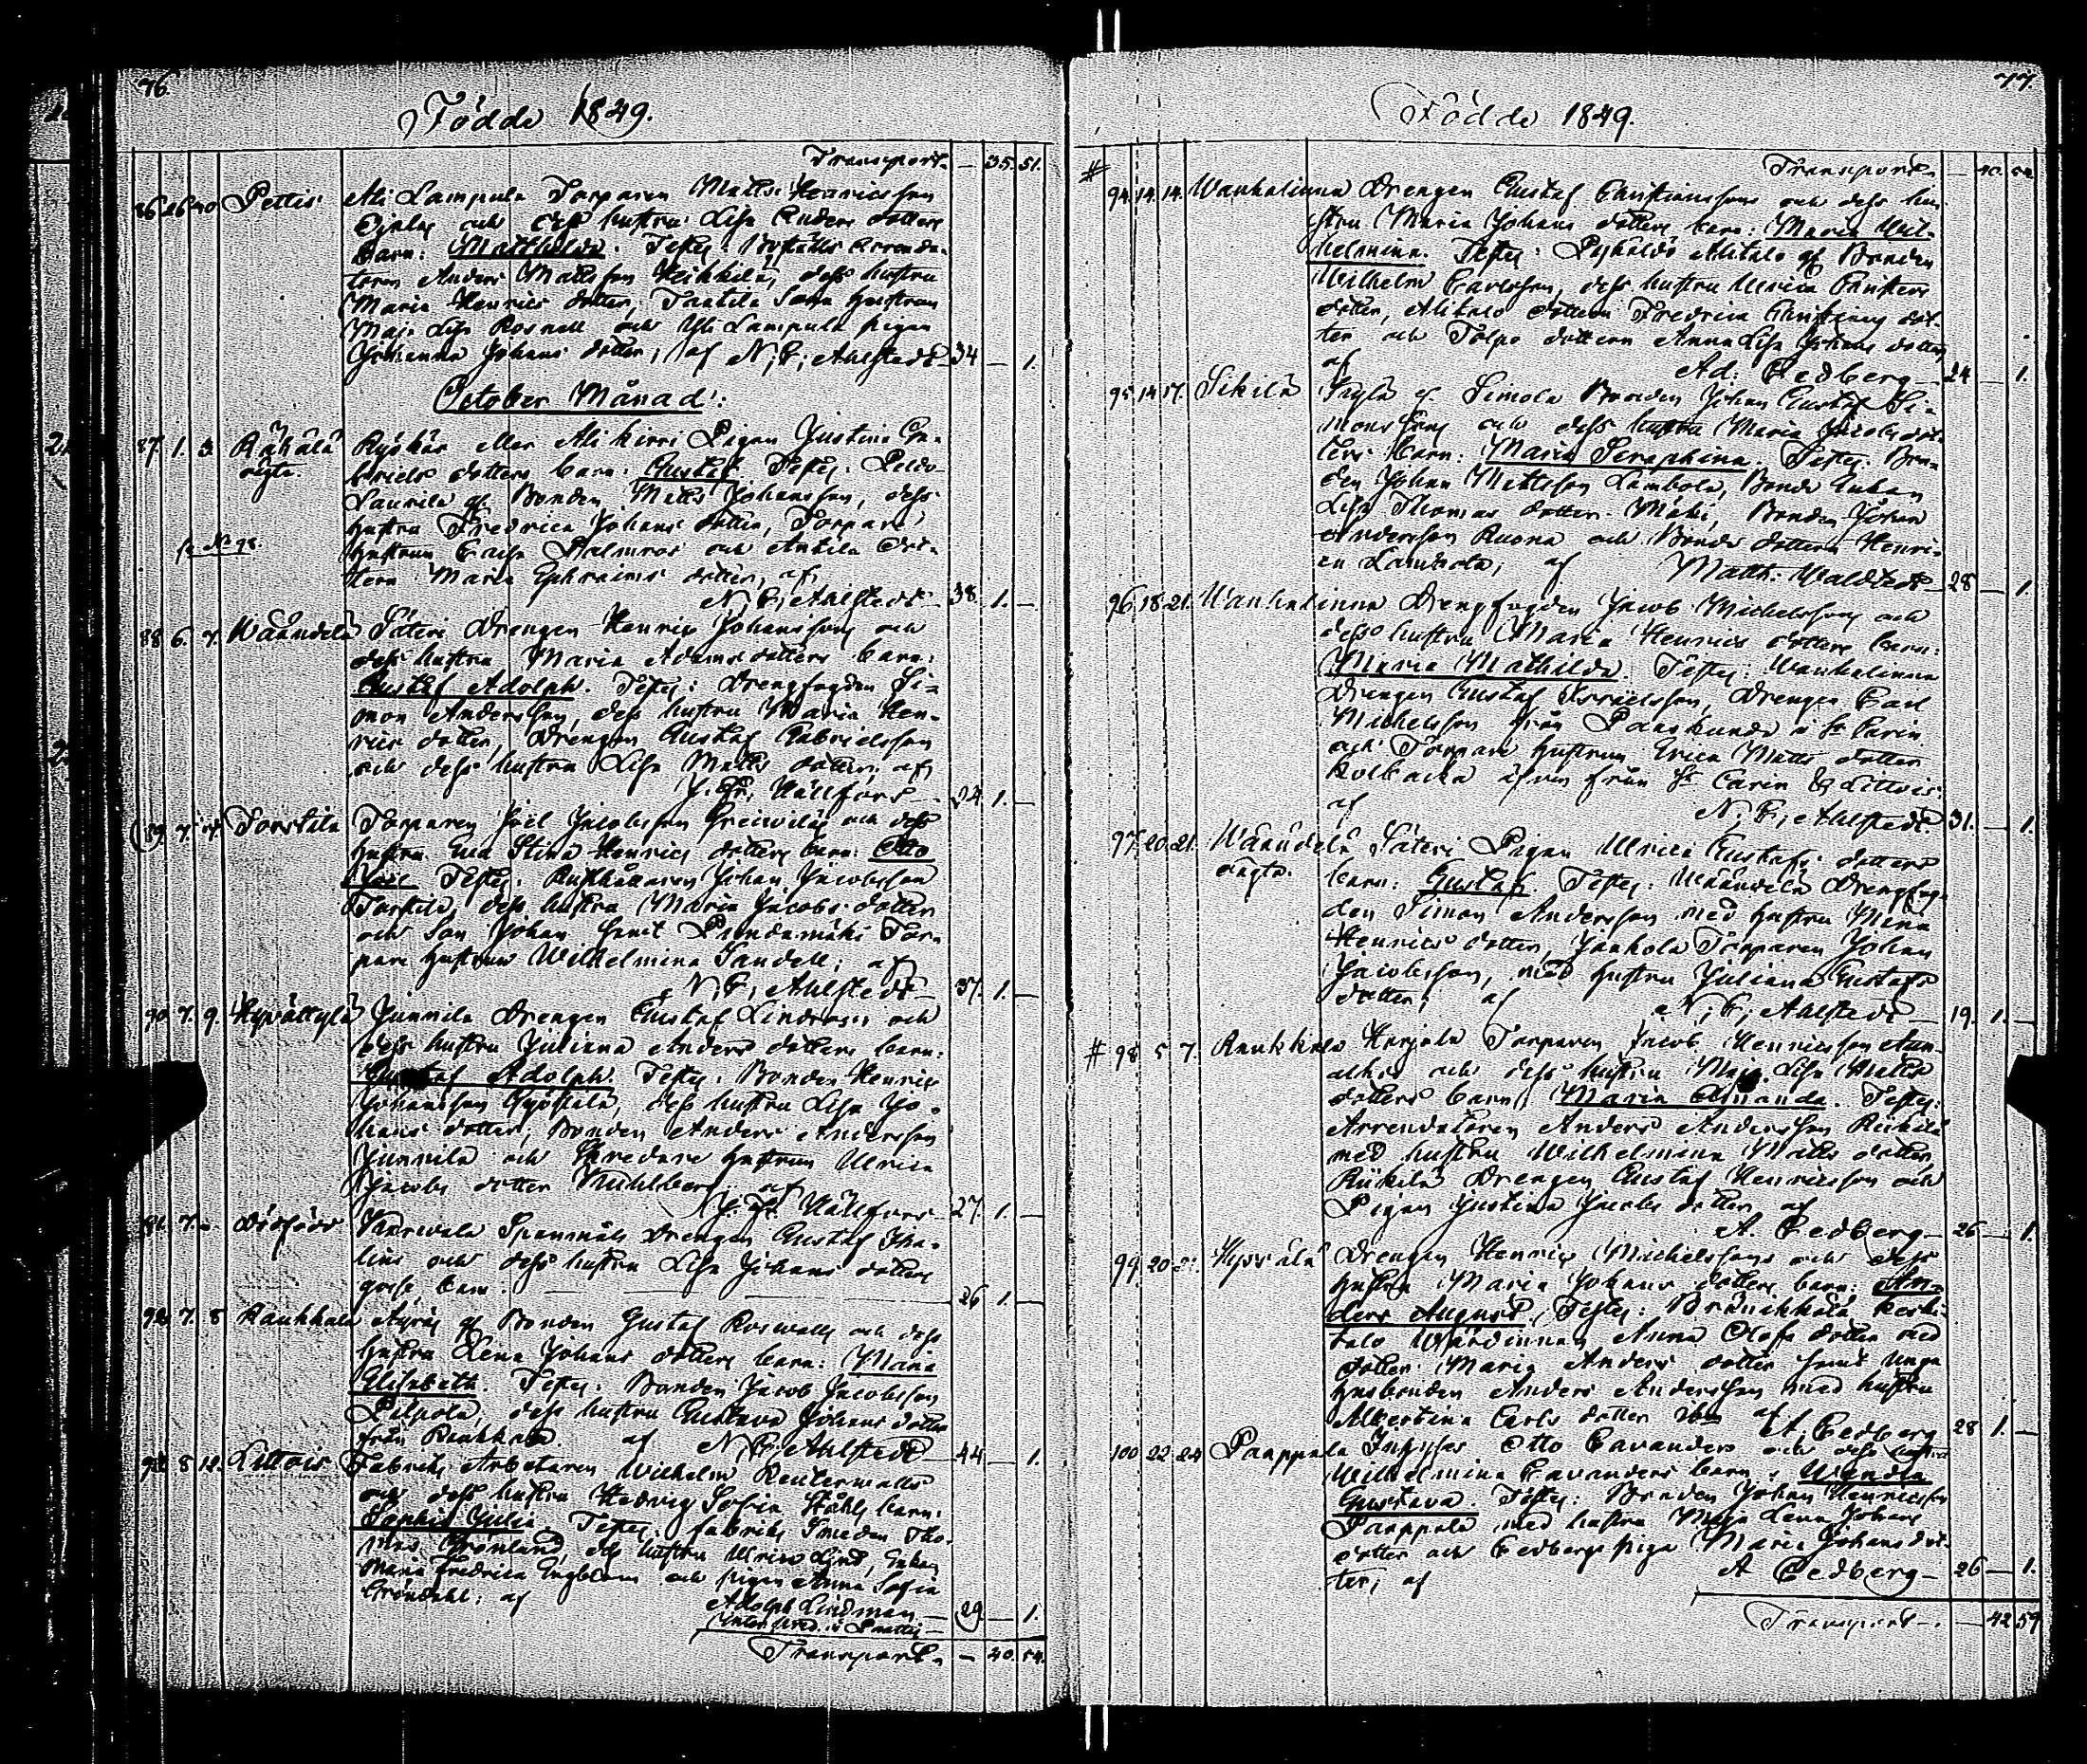 76.
Födde 1849.
Transport. — 35. 51.
86 26 30 Pettis Ali Lampula Torparen Matts Henricsson
och dess hustru Lisa Anders dotters
barn: Mathilda. Testes: Arrenda-
toren Anders Mattsson Heikkilä, dess hustru
Maria Henrics dotter, Tantila Sona hustrun
Maja Lisa Rosnell och Yli Lampula pigan
Johanna Johans dotter, af N. C. Ahlstedt 34 — 1.
October Månad:
87. 1. 3. Rähälä Ryökäs eller Ali Kirri Pigan Justina Ga-
oägta briels dotters barn: Gustaf. Testes: Peldo-
Laurila Bonden Matts Johansson, dess
hustru Fredrica Johans dotter, Torpare
se No 98. hustrun Caisa Palmroos och Antila dot-
tern Maria Ephraims dotter, af
N. C. Ahlstedt 38. 1. —
88 6. 7. Wäändelä Säteri Drengen Henric Johansson och
dess hustru Maria Adams dotters barn:
Gustaf Adolph. Testes: Drengfogden Si-
mon Andersson, dess hustru Maria Hen-
rics dotter, Drengen Gustaf Gabrielsson
och dess hustru Lisa Matts dotter, af
J. Fr. Hällfors 24. 1. —
89. 7. 14. Torstila Torparen Joel Jacobsson och dess
hustru Eva Stina Henrics dotters barn: Otto
Joel. Testes: Rusthållaren Johan Jacobsson
Torstila, dess hustru Maria Jacobs dotter
och Son Johan samt Pundamäki Tor-
pare hustrun Wilhelmina Sandell; af
N. C. Ahlstedt 37. 1. —
90. 7. 9. Hyvättylä Junnila Drengen Gustaf Lindroos och
dess hustru Juliana Anders dotters barn:
Gustaf Adolph. Testes: Bonden Henric
Johansson, dess hustru Lisa Jo-
hans dotter, Bonden Anders Andersson
Junnila och Skredare hustrun Ulrica
Jacobs dotter Muhlberg, af
J. Fr. Hällfors 27. 1. —
91. 7. — Dödfödt Kaarwala Spanmåls Drengen Gustaf
lins och dess hustru Lisa Johans dotters
gosse barn. — 26 1. —
92. 7. 8 Kaukkala Äyräs Bonden Gustaf Roswalls och dess
hustru Lena Johans dotters barn: Maria
Elisabeth. Testes: Bonden Jacob Jacobsson
Pilpola, dess hustru Gustava Johans dotter
från Raukkala. af N. C. Ahlstedt 44 — 1.
93. 8 12. Littois Fabriks Arbetaren Wilhelm Reuterwalls
och dess hustru Hedvig Sofia Ståhls barn:
Julia. Testes: fabriks Smeden Tho-
mas Grönlund, dess hustru Ulrica Lind, Enkan
Maria Fredrica Engblom och pigan Anna Sofia
Gröndahl: af
Adolph Lindman — 29 — 1.
Transport. — 40. 54.
77.
Födde 1849.
Transport. — 40. 54.
# 94. 14. 14. Wanhalinna Drengen Gustaf Christianssons och dess hu-
stru Maria Johans dotters barn: Maria Wil-
helmina. Testes: Alitalo Bonden
Wilhelm Carlsson, dess hustru Ulrica Christians
dotter, Alitalo dottern Fredrica Christians dot-
ter och Tolpo dottern Anna Lisa Johans dotter
af Ad: Cedberg — 24 — 1.
95. 14. 17. Sikilä Simola Bonden Johan Gustaf Si-
monssons och dess hustru Maria Jacobs dot-
ters barn: Maria Seraphina. Testes: Bon-
den Johan Mattsson Lambola, Bonde Enkan
Lisa Thomas dotter Mäki, Bonden Johan
Andersson Ruona och Bonde dottern Henri-
ca Lambola, af Matth: Waldstedt 28 — 1.
96. 18. 21. Wanhalinna Drengfogden Jacob Michelssons och
dess hustru Maria Henrics dotters barn:
Maria Mathilda. Testes: Wanhalinna
Drengen Gustaf Israelsson, Drengen Carl
Michelsson från Paaskunda i St Carin
och Torpare hustrun Erica Matts dotter
Kolkacka äfven från St Carin & Littois
af N. C. Ahlstedt 31. — 1.
97. 20. 21. Wäändelä Säteri Pigan Ulrica Gustafs dotters
oägta. barn: Gustaf. Testes: Wäändelä Drengfog-
den Simon Andersson med hustru Maria
Henrics dotter, Jankola Torparen Johan
Jacobsson, med hustru Juliana Gustafs
dotter, af N. C. Ahlstedt — 19. 1. —
# 98. 5 7. Raukkala Harjola Torparen Jacob Henricsson
och dess hustru Maja Lisa Matts
dotters barn: Maria Amanda. Testes:
Arrendatoren Anders Andersson Riikilä
med hustru Wilhelmina Matts dotter
Riikilä Drengen Gustaf Henricsson och
Pigan Justina Jacobs dotter af
A. Cedberg — 26 — 1.
99. 20. 21. Hyvälä Drengen Henric Michelssons och dess
hustru Maria Johans dotters barn: An-
ders August. Testes: Keski-
talo Wärdinnan Anna Olofs dotter med
dotter Maria Anders dotter samt unga
husbonden Anders Andersson med hustru
Albertina Carls dotter af A. Cedberg 28 1. —
100 22 24 Paappala Inhyses Otto Cavanders och dess hustru
Wilhelmina Cavanders barn: Wendla
Gustava. Testes: Bonden Johan Henricsson
Paappala med hustru Maja Lena Johans
dotter och Cedbergs piga Maria Johans dot-
ter, af A Cedberg — 26 — 1.
Transport. — 42 59